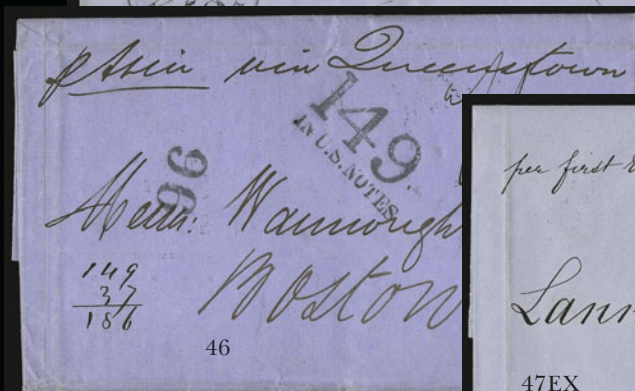 p Asia via Queenstown
149.
IN U.S. NOTES.
96
Messrs: Wainwright
Boston
149
37
186
46
per first
Lann
47EX